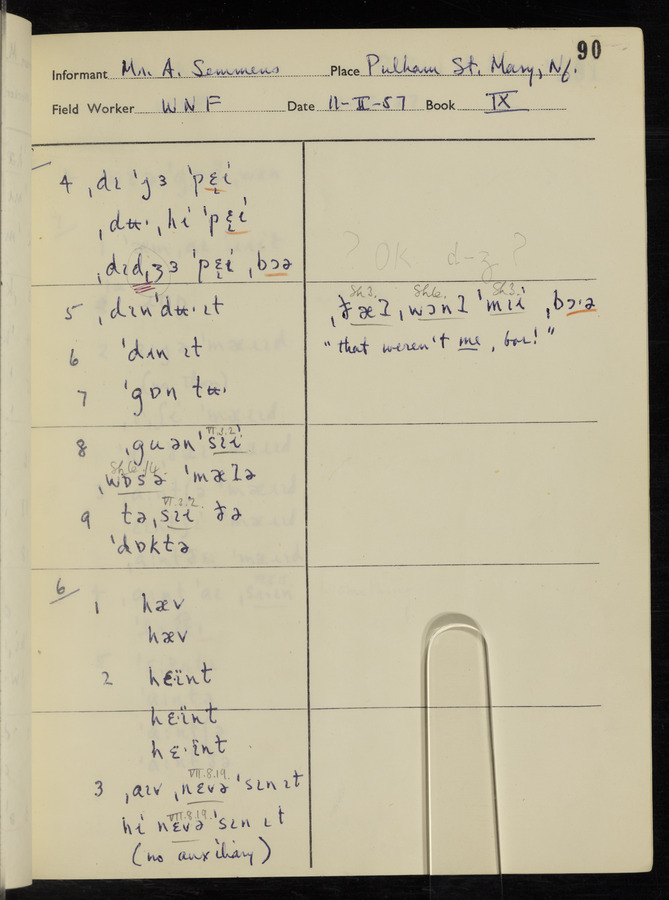 90
Informant Mr. A. Semmens Place Pulham St. Mary, Nf.
Field Worker WNF Date 11-II-57 Book IX
4 ˌdɪ 'jɜ 'pɛi
ˌdʉ· ˌhi 'pɛi
ˌdɪdˌʒɜ 'pɛi ˌbɔə
? OK d-z ?
5 ˌdɪn'dʉ· ɪt
Sh3. Sh6. Sh3.
ˌðæʔ ˌwɔnʔ 'mɪi ˌbɔ·ə
"that weren't me, bor!"
6 'dʌn ɪt
7 'gɒn tʉ·
VI.3.2
8 ˌguən 'sɪi
Sh6./4.
ˌwɒsə 'mæʔə
VI.3.2.
9 tə ˌsɪi ðə
'dɒktə
6
1 hæv
hæv
2 hɛïnt
hɛ·ïnt
hɛ·ïnt
VII.8.19.
3 ˌaɪv ˌnɛvə 'sɪn ɪt
VII.8.19.
hi nɛvə 'sɪn ɪt
(no auxiliary)